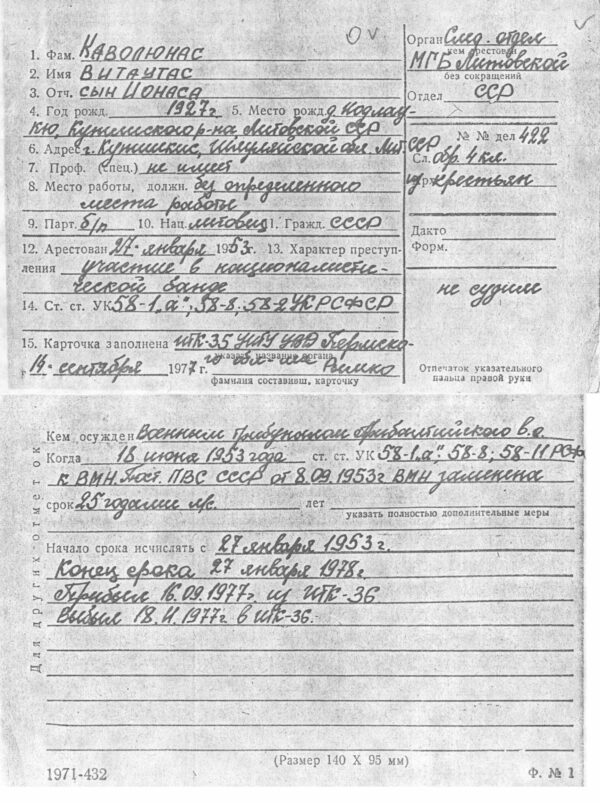 1. Фам. КАВОЛЮНАС
2. Имя ВИТАУТАС
3. Отч. СЫН ЙОНАСА
4. Год рожд. 1927г 5. Место рожд.
кю, Купишкского р-на, Литовской ССР
6. Адрес г. Купишкис, Шяуляйской обл. Лит.ССР
7. Проф. (спец.) не имеет
8. Место работы, должн. без определенного
места работы
9. Парт. б/п 10. Нац. литовец 11. Гражд. СССР
12. Арестован 27 января 1953г. 13. Характер преступ-
ления участие в националисти-
ческой банде
14. Ст. ст. УК 58-1„а"; 58-8; 58-2 УК РСФСР
15. Карточка заполнена ИТК-35 УИТУ УВД Пермско-
указать название органа
го обл-
„14" сентября 1977 г.
фамилия составивш. карточку
Орган След. отдел
кем арестован
МГБ Литовской
без сокращений
Отдел ССР
№ № дел 422
Сл. обр. 4 кл.
из крестьян
Дакто
Форм.
не судим
Отпечаток указательного
пальца правой руки
Для других отметок
Кем осужден Военным трибуналом Прибалтийского в.о.
Когда 18 июня 1953 года ст. ст. УК 58-1„а"; 58-8; 58-11 РСФ
к ВМН. Пост. ПВС СССР от 8.09.1953г ВМН заменена
срок 25 годами л/с. лет
указать полностью дополнительные меры
Начало срока исчислять с 27 января 1953г.
Конец срока 27 января 1978г.
Прибыл 16.09.1977г. из ИТК-36
Выбыл 18.11.1977г в ИТК-36.
(Размер 140 X 95 мм)
1971-432
Ф. № 1